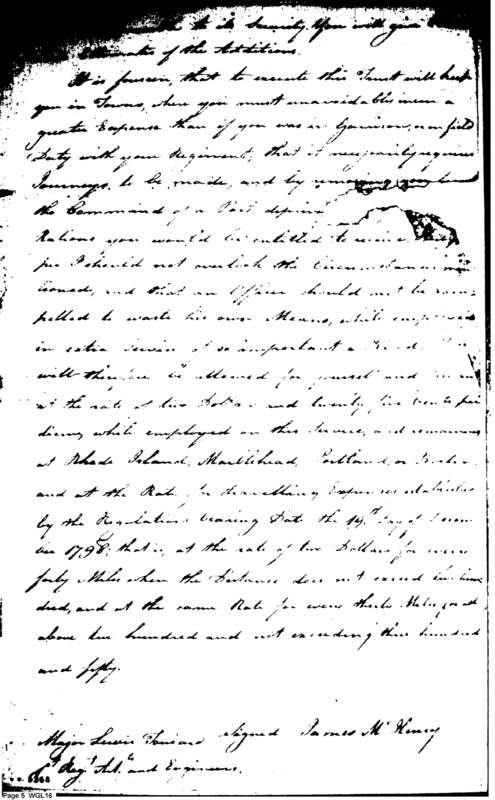 to its Security. You will give
Estimates of the Additions.
It is foreseen, that to execute this Trust will keep
you in Towns, where you must unavoidably incur a
greater Expense than if you was in Garrison, or on field
Duty with your Regiment; that it necessarily requires
Journeys, to be made, and by removing you from
the Command of a Post, deprives
Rations you would be entitled to receive.
I should not overlook the Circumstances
tioned, and that an Officer should not be com-
pelled to waste his own Means, while employed
in extra Service of so important a kind. You
will therefore be allowed for yourself and
at the rate of two Dollars and twenty five cents per
diem, while employed on this Service, and remaining
at Rhode Island, Marblehead, Portland, or
and at the Rate for travelling Expenses established
by the Regulations bearing Date the 19th day of Decem
ber 1798; that is, at the rate of two Dollars for every
forty Miles when the Distance does not exceed two hun
dred, and at the same Rate for every thirty Miles, for all
above two hundred and not exceeding three hundred
and fifty.
signed James McHenry
Major Lewis Tousard
1st Regt. Arts. and Engineers.
Page 5 WGL16